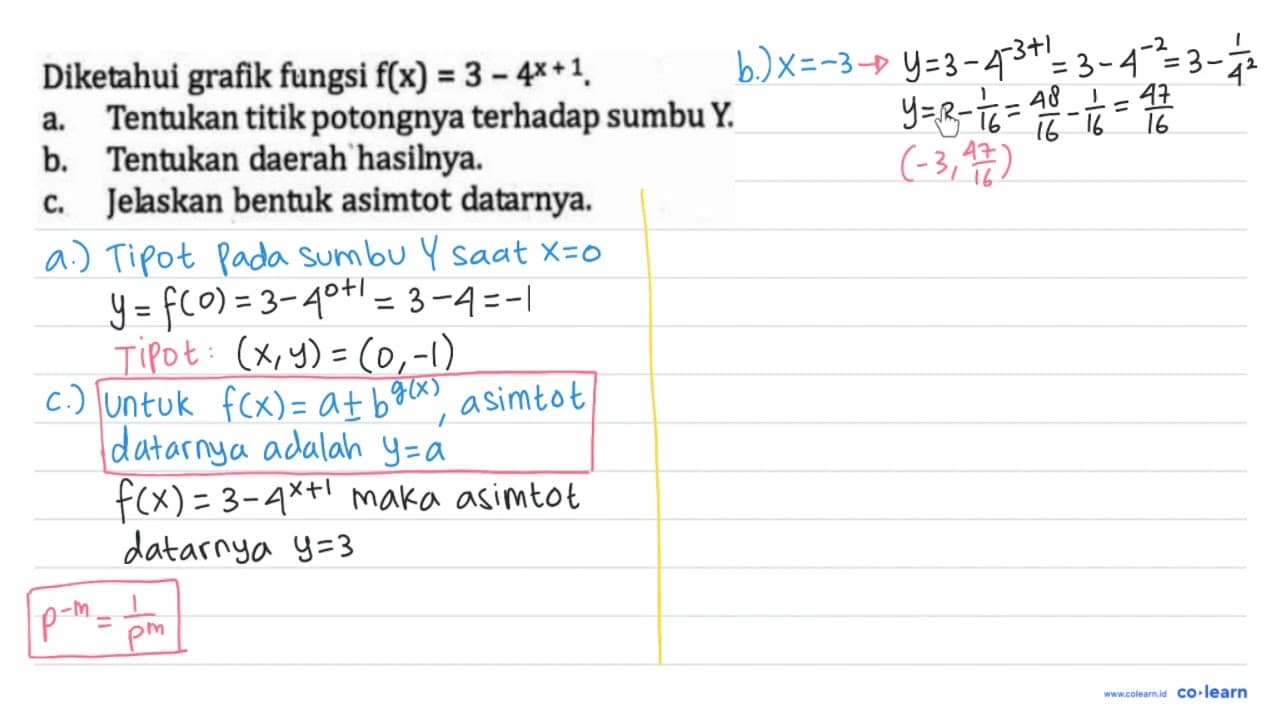 Diketahui grafik fungsi f(x) = 3 – 4^{x+1}.
a. Tentukan titik potongnya terhadap sumbu Y.
b. Tentukan daerah hasilnya.
c. Jelaskan bentuk asimtot datarnya.
a.) Tipot Pada sumbu Y saat x=0
y = f(0) = 3-4^{0+1} = 3-4 = -1
Tipot: (x,y) = (0,-1)
c.) Untuk f(x) = a ± b^{g(x)}, asimtot
datarnya adalah y=a
f(x) = 3-4^{x+1} maka asimtot
datarnya y=3
p^{-m} = 1/p^m
b.) x=-3 → y=3-4^{-3+1} = 3-4^{-2} = 3-1/4^2
y= - 1/16 = 48/16 - 1/16 = 47/16
(-3, 47/16)
www.colearn.id co·learn